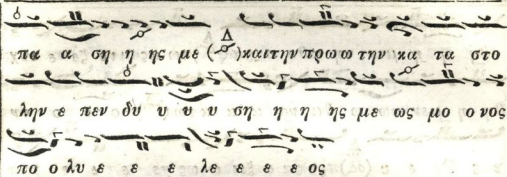 πα α ση η ης με ( Δ ) και την πρω ω την κα τα στο
λην ε πεν δυ υ υ υ ση η η ης με ως μο ο νος
πο ο λυ ε ε ε ε λε ε ε ε ος